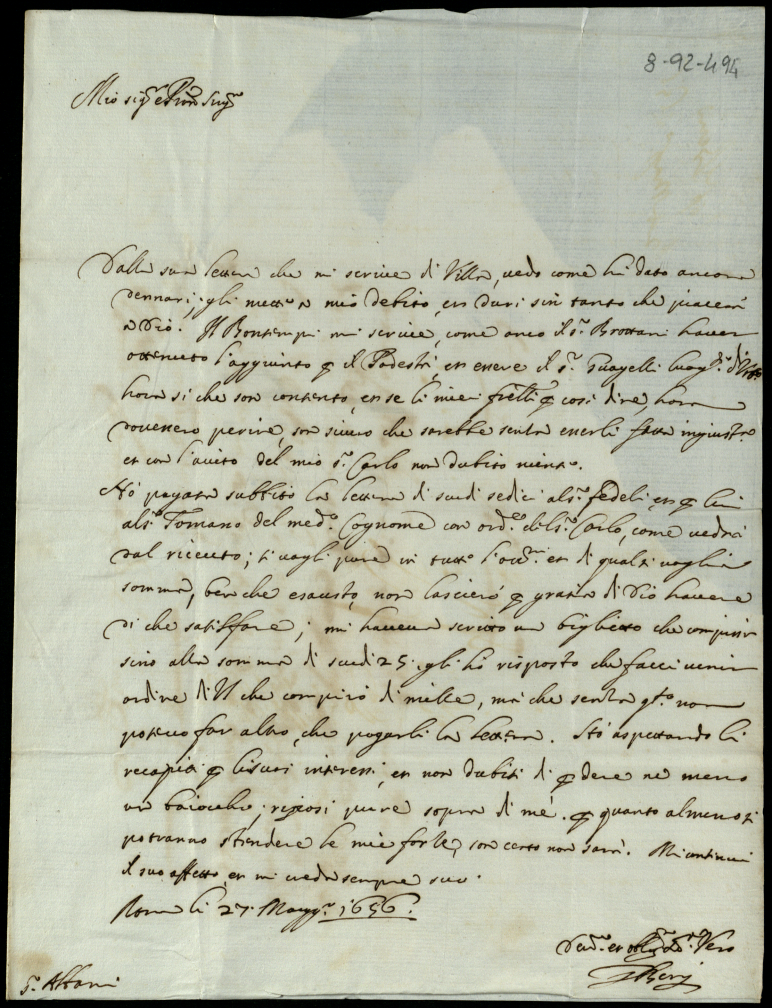 8-92-494
Mio sig.re e Pron Sing.re
Dalla sua lettera che mi scrive di Villa, vedo come hà dato ancora
dennari, gli metto a mio debito, et duri sin tanto che piacerà
a Dio. Il Bontempi mi scrive, come anco il s.r Brottani haver
ottenuto l'aggiunto p il Podestà, et essere il s.r
hora si che son contento, et se li miei p cosi dire, hora
dovessero perire, son sicuro che sarebbe senza esserli fatta ingiustia
et con l'aiuto del mio s.r Carlo non dubito niente.
Hò pagata subbito la lettera di scudi sedici al s.r fedeli, et p lui
al s.r Tomano del med.o Cognome con ord.e del s.r Carlo, come vedrà
dal riceuto; si vagli pure in tutto et di qualsi voglia
somma, ben che esausto, non lascierò p gratia di Dio havere
di che satisfare; mi haveva scritto un biglietto che compissi
sino alla somma di scudi 25. gli hò risposto che facci venir
ordine di V che compirò di mille, mà che senza q.to non
potevo far altro, che pagarli la lettera. Stò aspettando li
recapiti p li suoi interessi, et non dubiti di p dere ne meno
un baiocho; riposi pure sopra di mè. p quanto almeno si
potranno stendere le mie forze, son certo non sarà. Mi continui
il suo affetto, et mi creda sempre suo.
Roma li 27 Magg.o 1656.
Dev.mo et Vero
S.r Altani